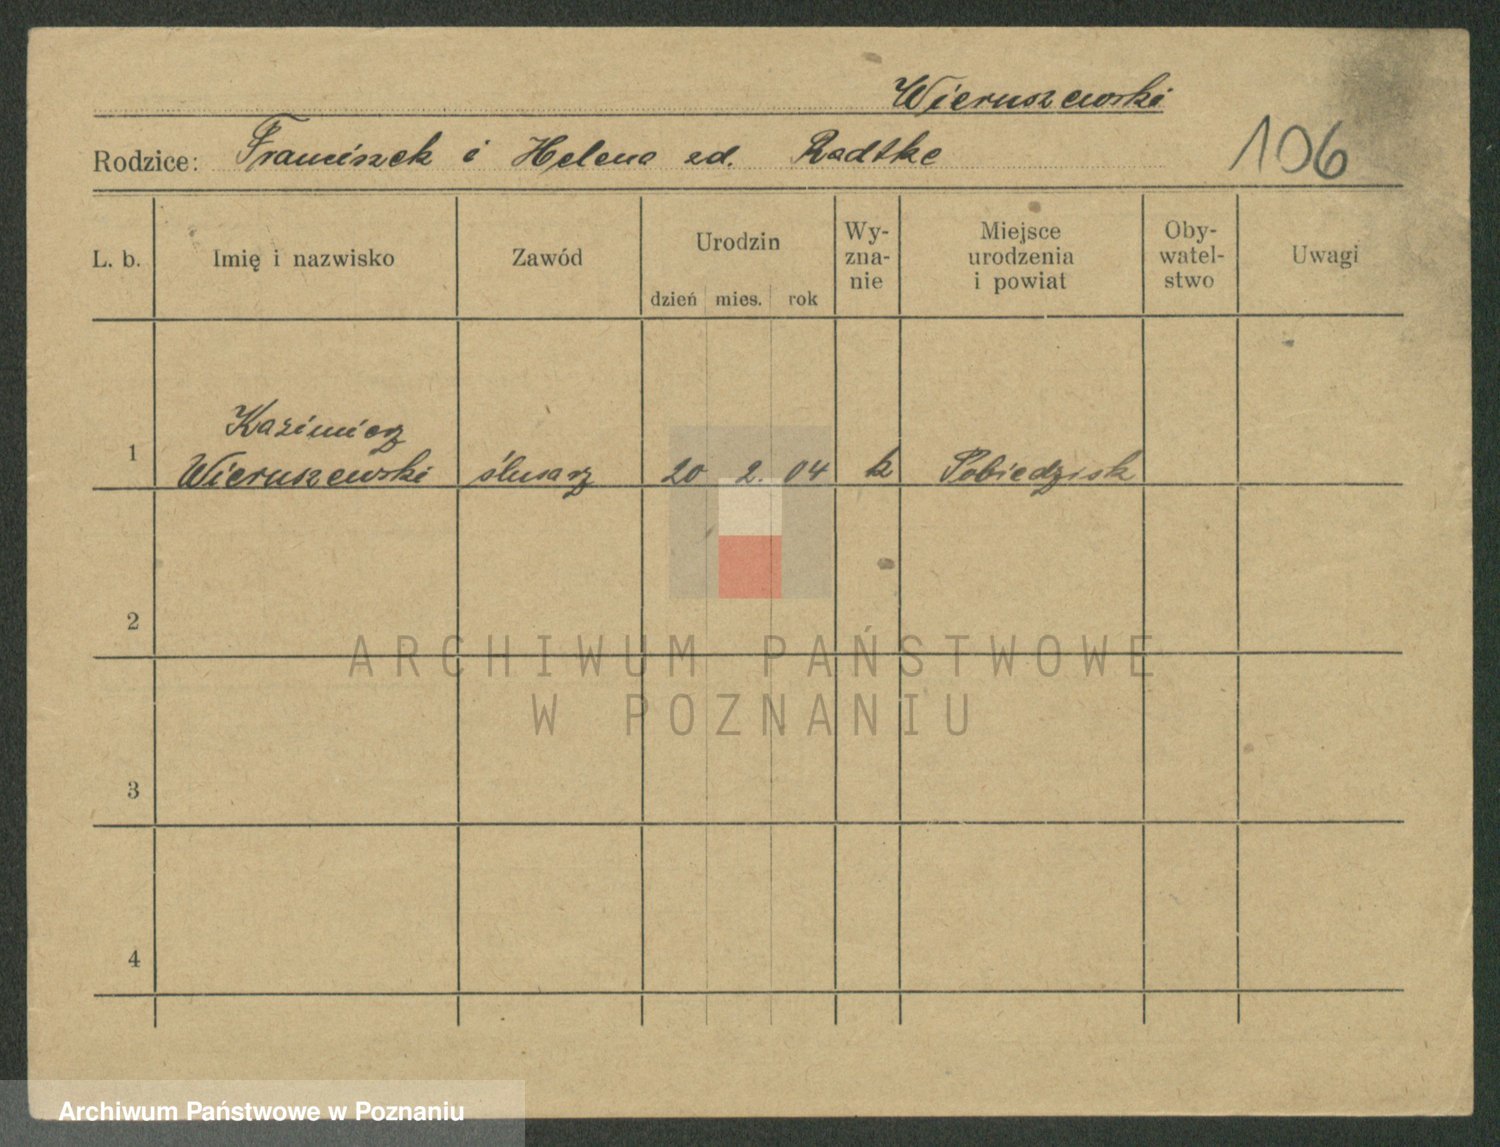 Wieruszewski
Rodzice: Franciszek i Helena zd. Radtke
106
L. b. Imię i nazwisko Zawód Urodzin dzień mies. rok Wy-
zna-
nie Miejsce
urodzenia
i powiat Oby-
watel-
stwo Uwagi
Kazimierz
1 Wieruszewski ślusarz 20 2. 04 k Pobiedzisk
2
ARCHIWUM PAŃSTWOWE
W POZNANIU
3
4
Archiwum Państwowe w Poznaniu